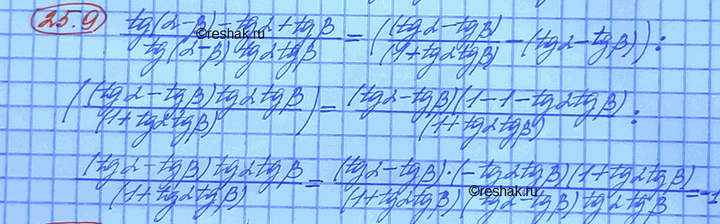 25.9 (tg(α-β)-tgα+tgβ)/(tg(α-β)tgαtgβ) = ((tgα-tgβ)/(1+tgαtgβ) - (tgα-tgβ)):
((tgα-tgβ)tgαtgβ/(1+tgαtgβ)) = (tgα-tgβ)(1-1-tgαtgβ)/(1+tgαtgβ):
(tgα-tgβ)tgαtgβ/(1+tgαtgβ) = (tgα-tgβ)·(-tgαtgβ)(1+tgαtgβ)/(1+tgαtgβ)(tgα-tgβ)tgαtgβ = -1
©reshak.ru
©reshak.ru